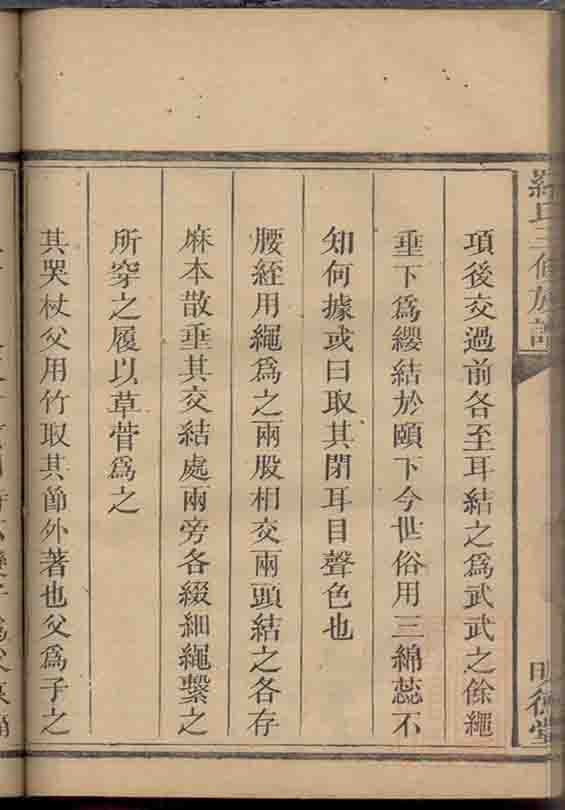 項後交過前各至耳結之爲武武之餘繩
垂下爲纓結於頤下今世俗用三綿蕊不
知何據或曰取其閉耳目聲色也
腰絰用繩爲之兩股相交兩頭結之各存
麻本散垂其交結處兩旁各綴細繩繫之
所穿之履以草菅爲之
其哭杖父用竹取其節外著也父爲子之